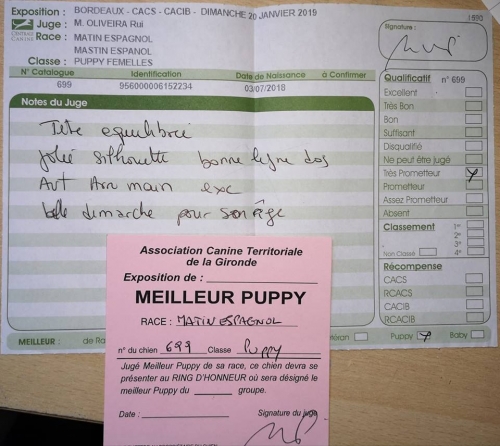 Exposition : BORDEAUX - CACS - CACIB - DIMANCHE 20 JANVIER 2019
Juge : M. OLIVEIRA Rui
Race : MATIN ESPAGNOL
MASTIN ESPANOL
Classe : PUPPY FEMELLES
CENTRALE CANINE
1590
Signature :
N° Catalogue Identification Date de Naissance à Confirmer
699 956000006152234 03/07/2018
Notes du Juge
Tête equilibrée
jolie silhouette bonne ligne dos
Avt Arr main exc
belle demarche pour son âge
Qualificatif n° 699
Excellent
Très Bon
Bon
Suffisant
Disqualifié
Ne peut être jugé
Très Prometteur
Prometteur
Assez Prometteur
Absent
Classement 1er
2e
3e
Non Classé 4e
Récompense
CACS
RCACS
CACIB
RCACIB
MEILLEUR : de Ra
Puppy Baby
Association Canine Territoriale
de la Gironde
Exposition de :
MEILLEUR PUPPY
RACE : MATIN ESPAGNOL
n° du chien 699 Classe Puppy
Jugé Meilleur Puppy de sa race, ce chien devra se
présenter au RING D'HONNEUR où sera désigné le
meilleur Puppy du groupe.
Date : Signature du juge